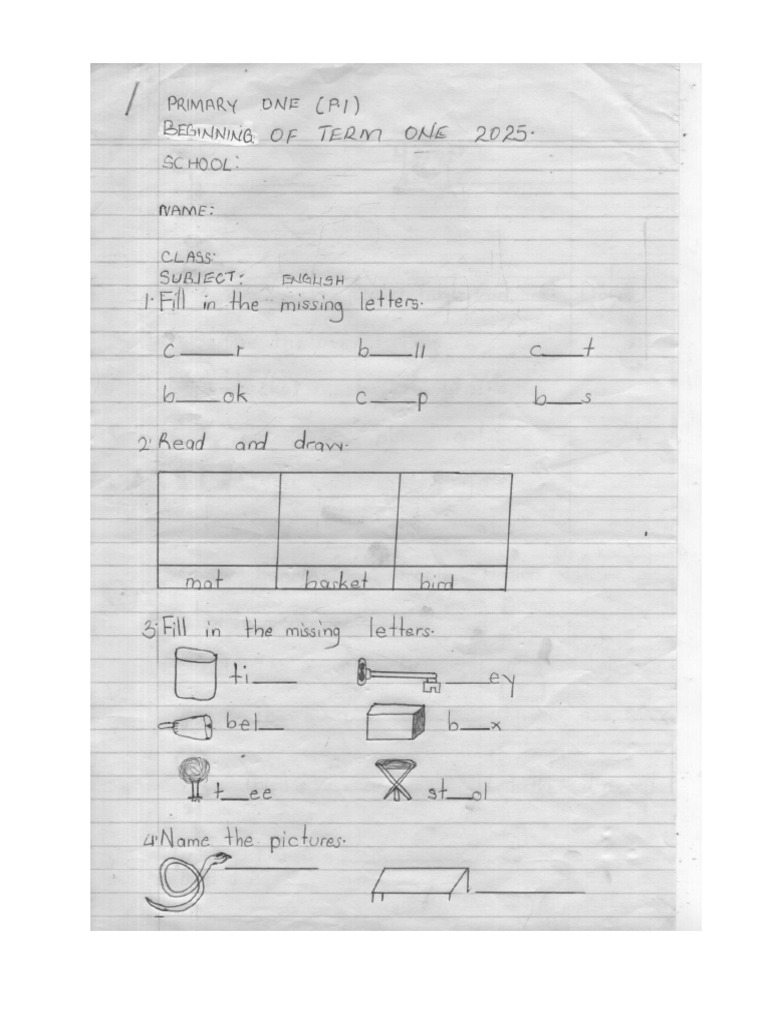 PRIMARY ONE (P.1)
BEGINNING OF TERM ONE 2025.
SCHOOL:
NAME:
CLASS:
SUBJECT: ENGLISH
1. Fill in the missing letters.
c____r b____ll c____t
b____ok c____p b____s
2. Read and draw.
mat basket bird
3. Fill in the missing letters.
ti____ ____ey
bel__ b__x
t__ee st__ol
4. Name the pictures.